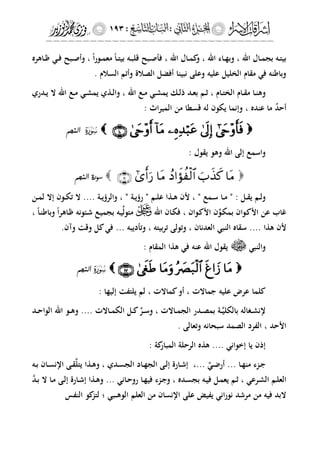 الباب الثاني : أبحاث التاريخ : ١٩٣
بيته بجمال الله ، وبهاء الله ، وكمال الله ، فأصبح قلبه بيتاً معموراً ، وأصبح في ظاهره
وباطنه في مقام الخليل عليه وعلى نبينا أفضل الصلاة وأتم السلام .
وهنا مقام الختام ، ثم بعد ذلك يمشي مع الله ، والذي يمشي مع الله لا يدري
أحدٌ ما عنده ، وإنما يكون له قسطا من الميراث :
﴿ فَأَوْحَىٰٓ إِلَىٰ عَبْدِهِۦ مَآ أَوْحَىٰ ۝١٠ ﴾ سورة النجم
واسمع إلى الله وهو يقول :
﴿ مَا كَذَبَ ٱلْفُؤَادُ مَا رَأَىٰٓ ۝١١ ﴾ سورة النجم
ولم يقل : " ما سمع " ، لأن هذا علم " رؤية " ، والرؤية .... لا تكون إلا لمن
غاب عن الأكوان بمكوِّن الأكوان ، فكان الله ﷻ متولّيه بجميع شئونه ظاهراً وباطناً ،
لأن هذا .... سقاه النبي العدنان ، وتولى تربيته ، وتأديبه ... في كل وقت وآن.
والنبي ﷺ يقول الله عنه في هذا المقام :
﴿ مَا زَاغَ ٱلْبَصَرُ وَمَا طَغَىٰ ۝١٧ ﴾ سورة النجم
كلما عرض عليه جمالات ، أو كمالات ، لم يلتفت إليها :
لإنشغاله بالكليَّة بمصدر الجمالات ، وسرِّ كل الكمالات .... وهو الله الواحد
الأحد ، الفرد الصمد سبحانه وتعالى .
إذن يا إخواني .... هذه الرحلة المباركة :
جزء منها ... أرضيّ ...، إشارة إلى الجهاد الجسدي ، وهذا يتلَّقى الإنسان به
العلم الشرعي ، ثم يعمل فيه بجسده ، وجزء فيها روحاني ... وهذا إشارة إلى ما لا بدَّ
لابد فيه من مرشد نوراني يفيض على الإنسان من العلم الوهبي ؛ لتزكو النفس